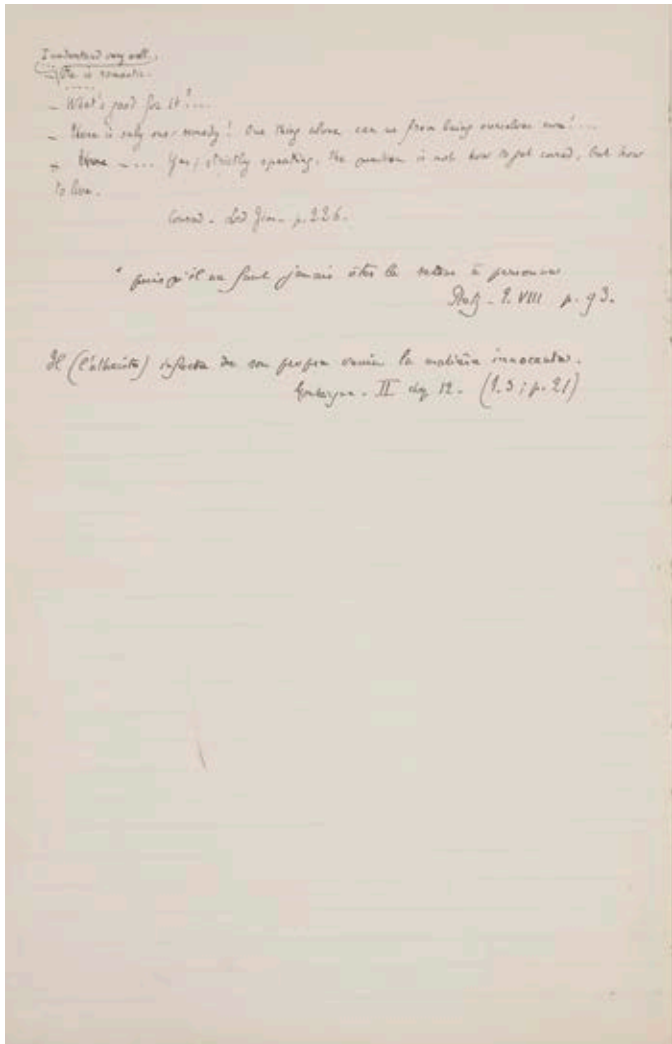 I understand very well.
He is romantic.
– What's good for it?....
– There is only one remedy! One thing alone can us from being ourselves cure!...
– .... Yes, strictly speaking, the question is not how to get cured, but how
to live.
Conrad – Lord Jim – p. 226.
" puis qu'il ne faut jamais ôter le retour à personne
Retz – T. VIII p. 93.
Il (l'athéiste) infecte de son propre venin la matière innocente.
Montaigne – II chap 12. (T. 3 ; p. 21)